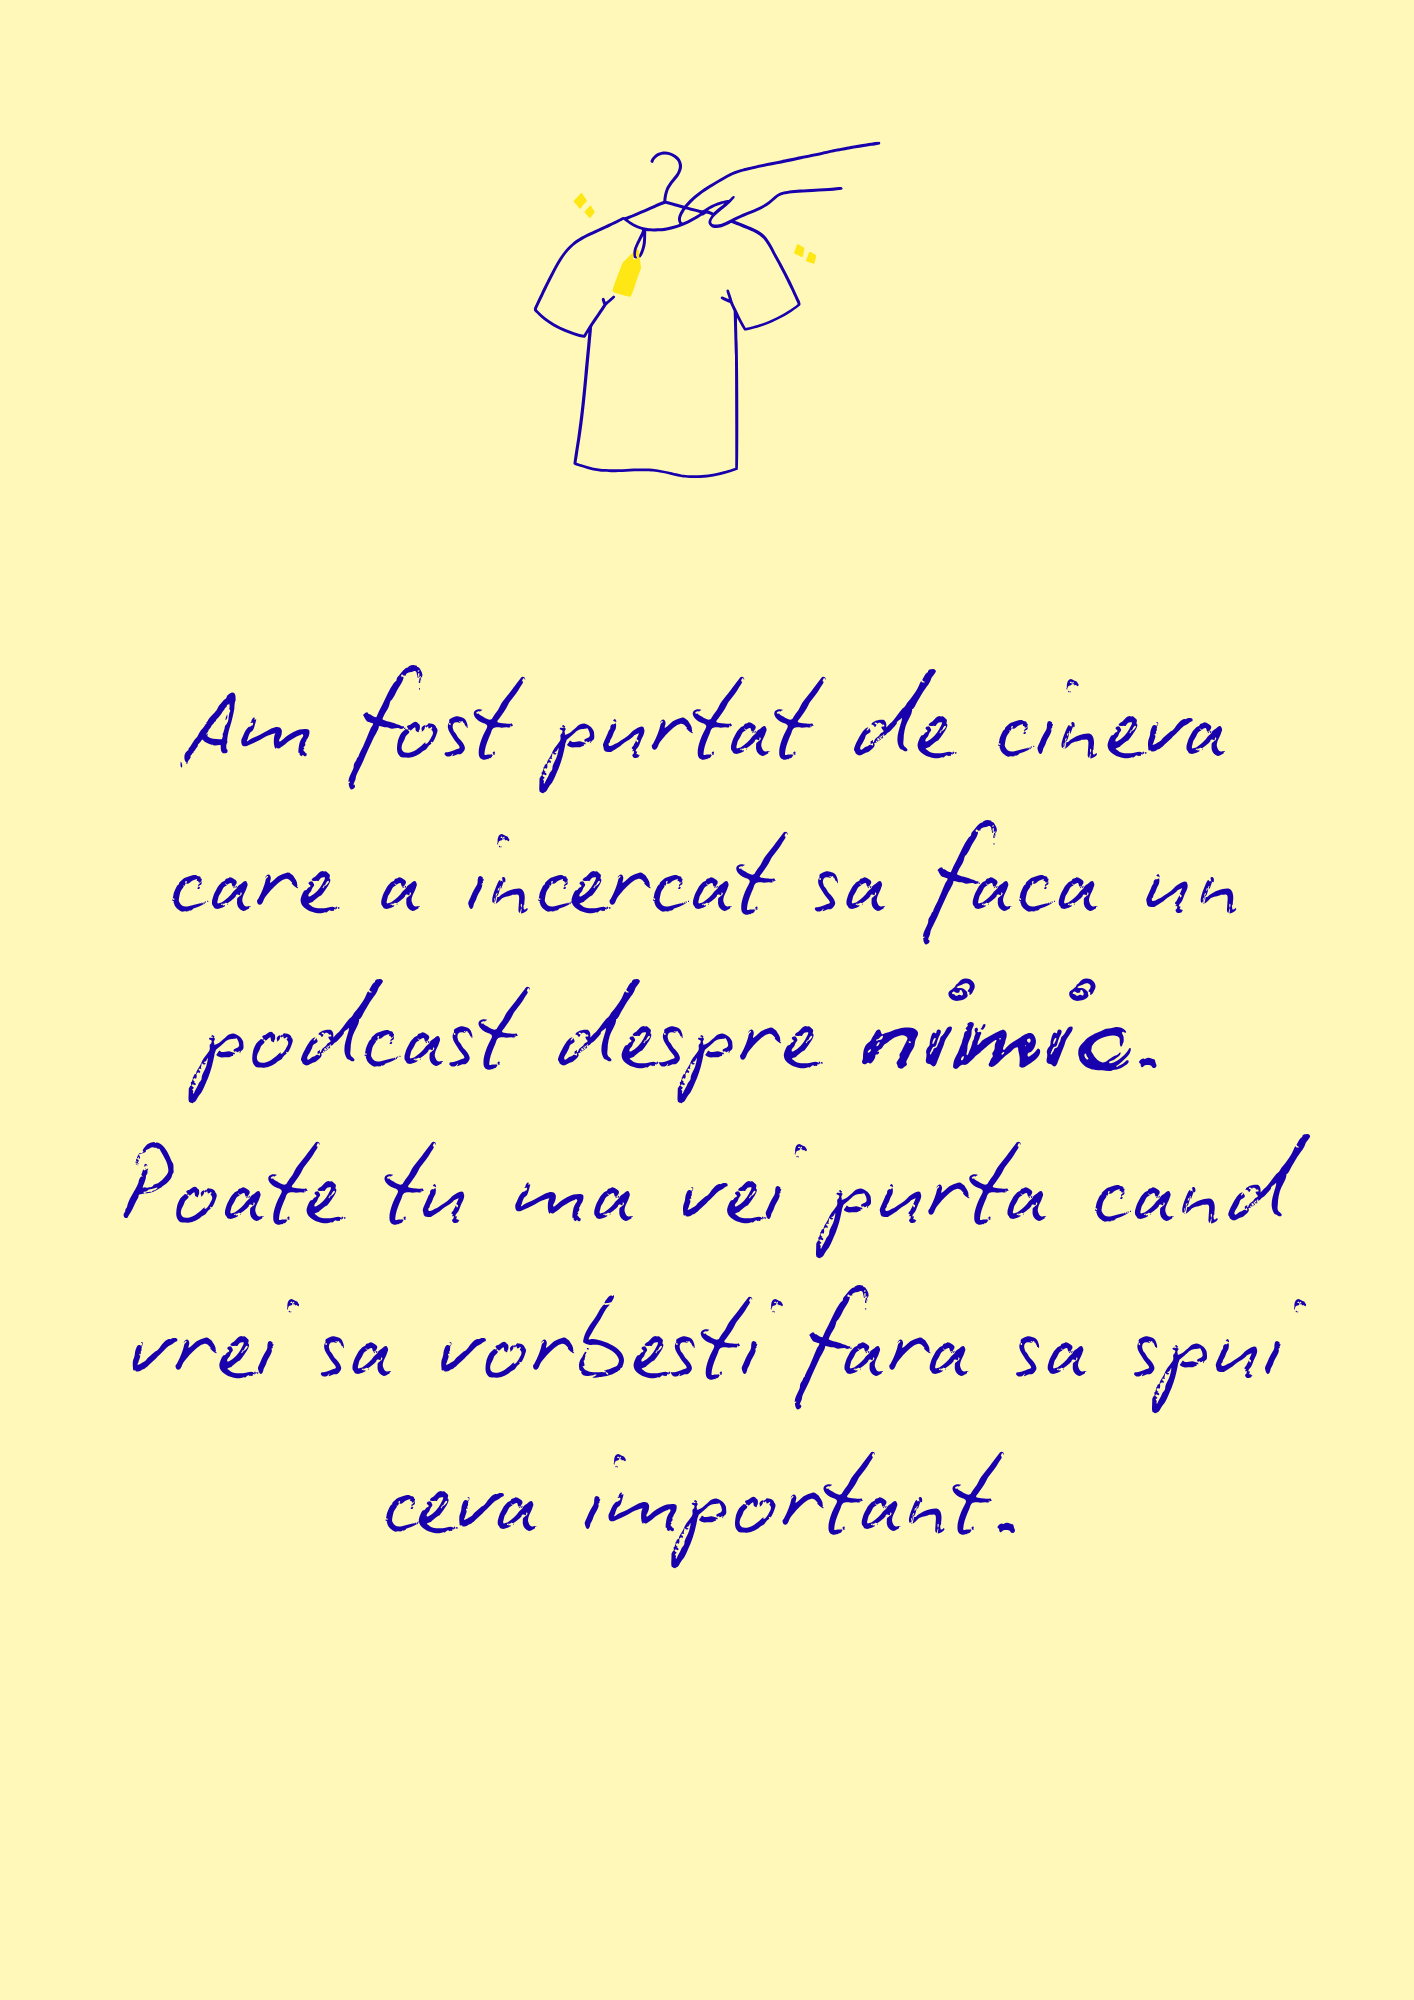 Am fost purtat de cineva
care a incercat sa faca un
podcast despre nimic.
Poate tu ma vei purta cand
vrei sa vorbesti fara sa spui
ceva important.